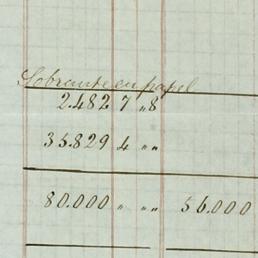 Sobrante en papel
2.482 7 „8
35.829 4 „„
80.000 „ „„ 56.000